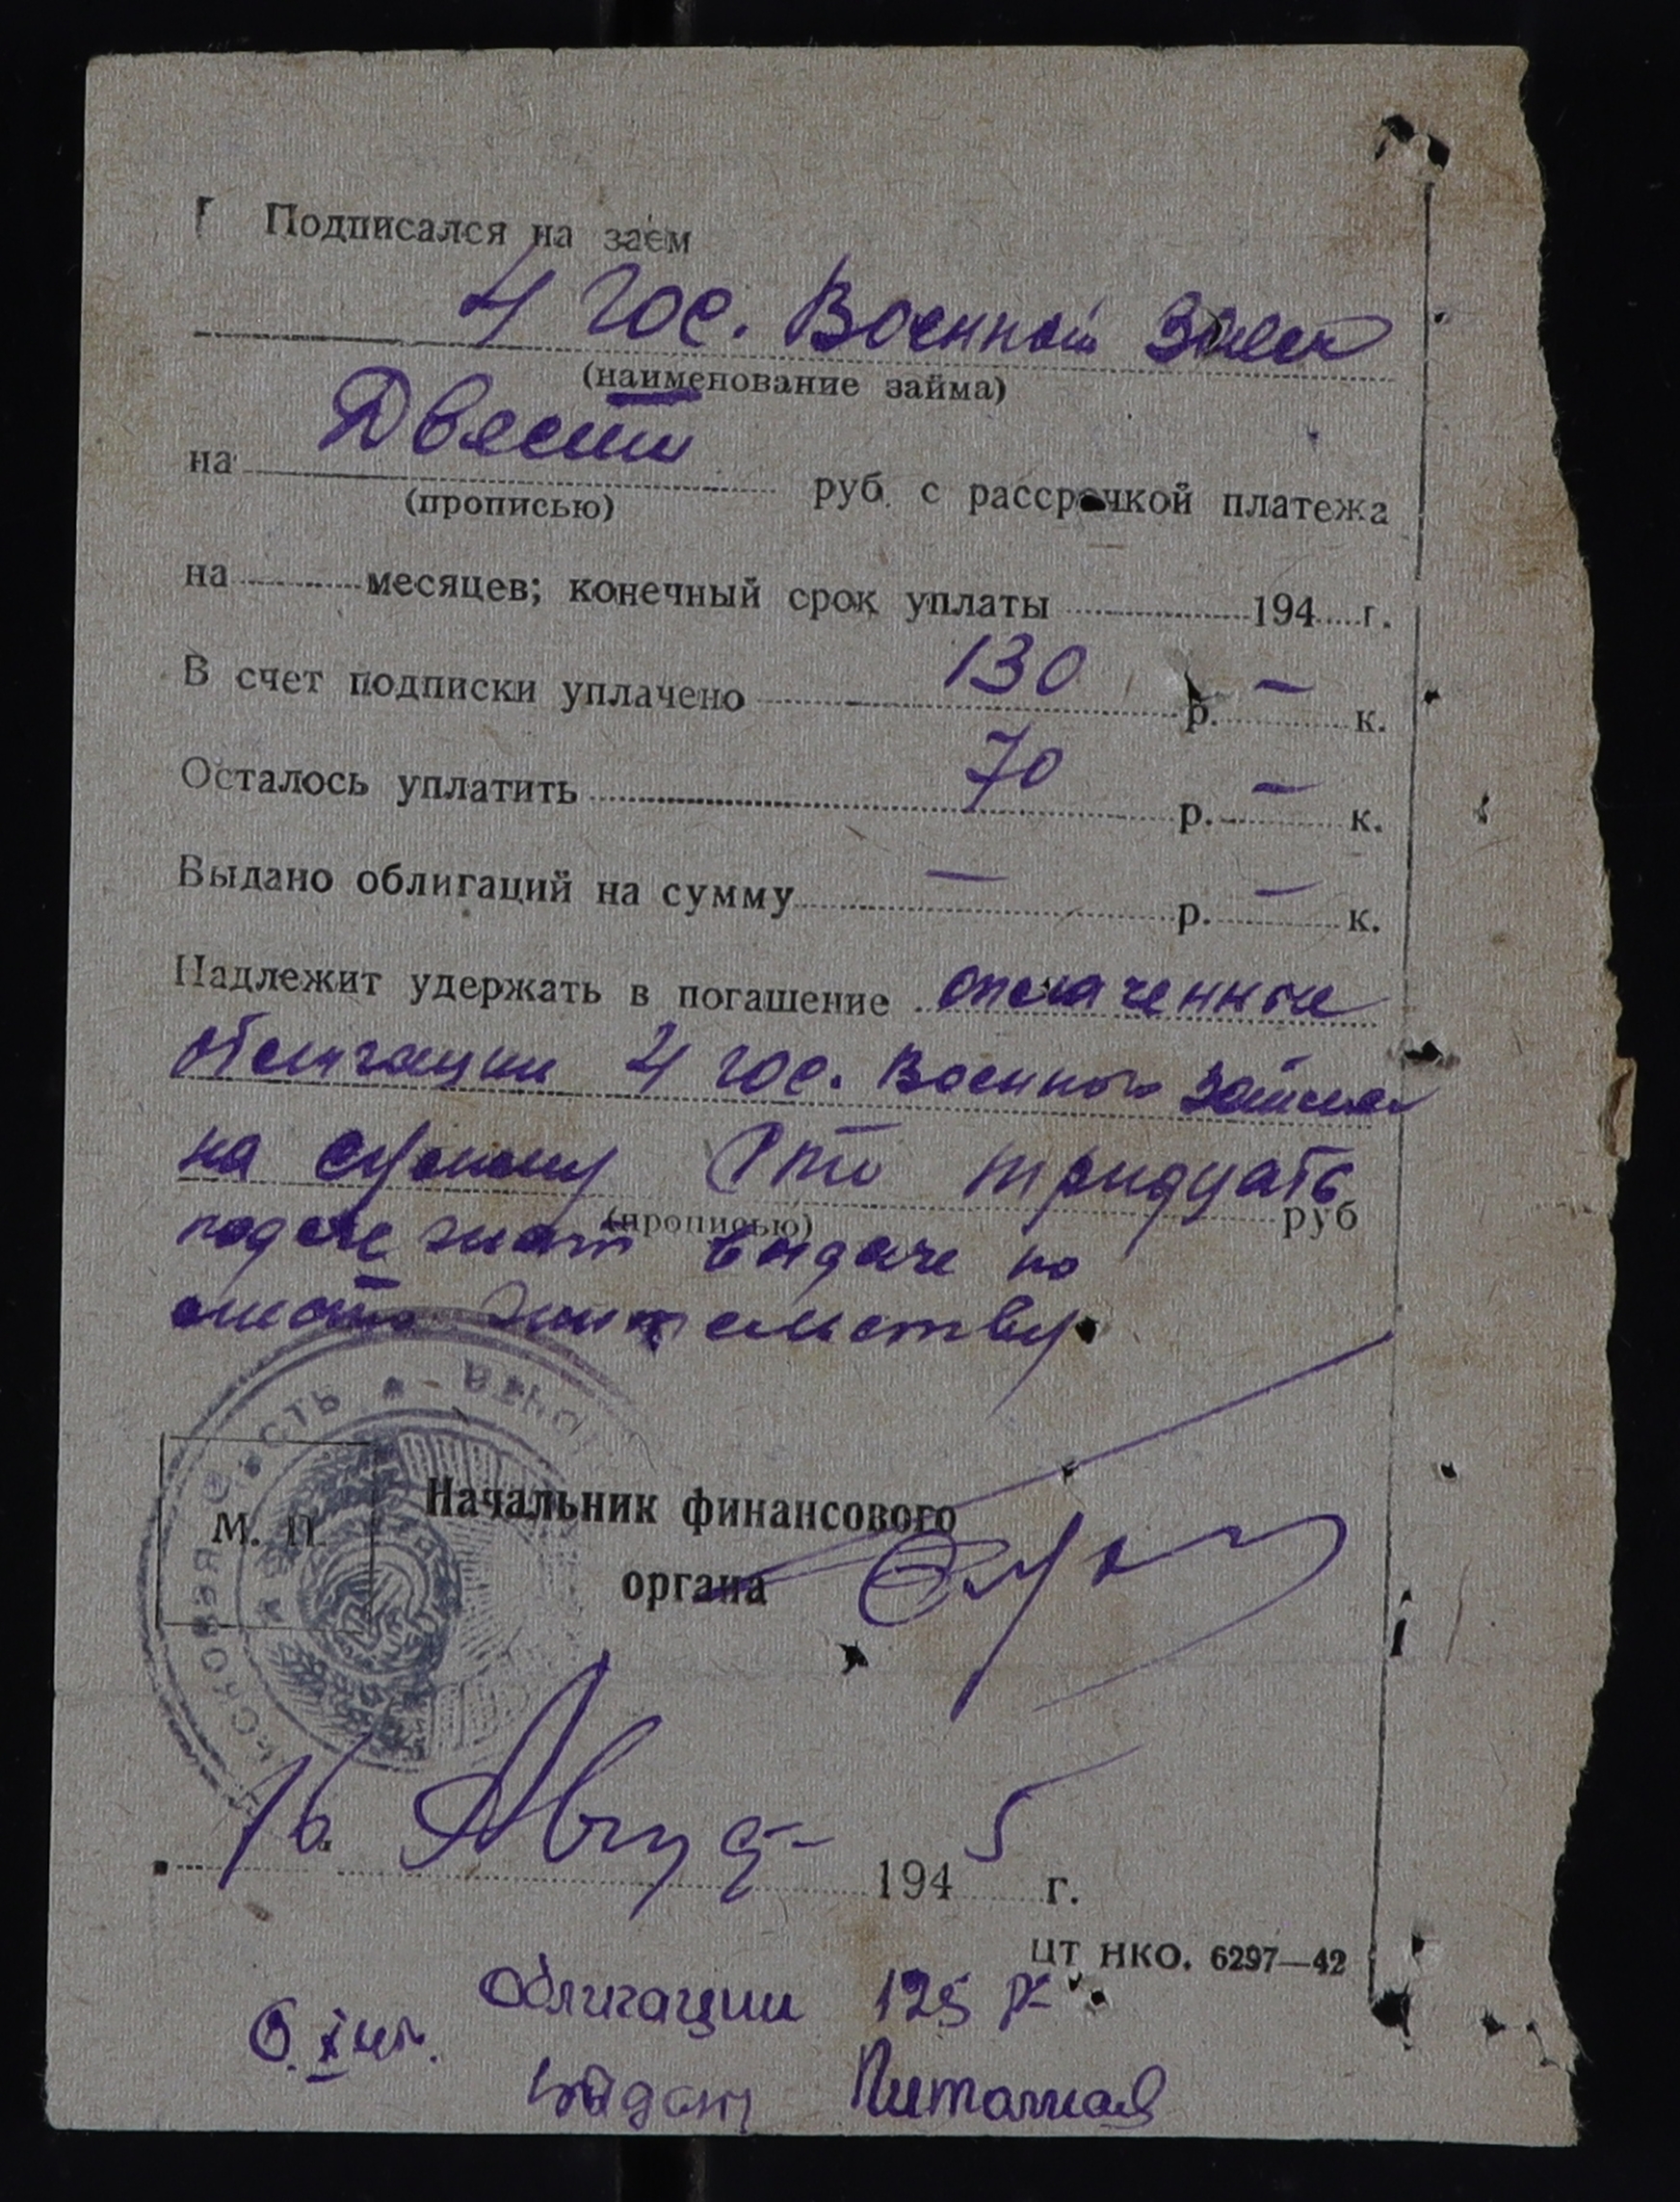 Подписался на заем
4 гос. Военный Заем
(наименование займа)
на Двести руб. с рассрочкой платежа
(прописью)
на месяцев; конечный срок уплаты 194 г.
В счет подписки уплачено 130 р. — к.
Осталось уплатить 70 р. — к.
Выдано облигаций на сумму — р. — к.
Надлежит удержать в погашение оплаченные
облигации 4 гос. Военного Займа
на сумму Сто тридцать руб
(прописью)
подлежат выдаче по
месту жительству.
М. П.
Начальник финансового
органа
16 Август 1945 г.
ЦТ НКО. 6297—42
Облигации 125 р